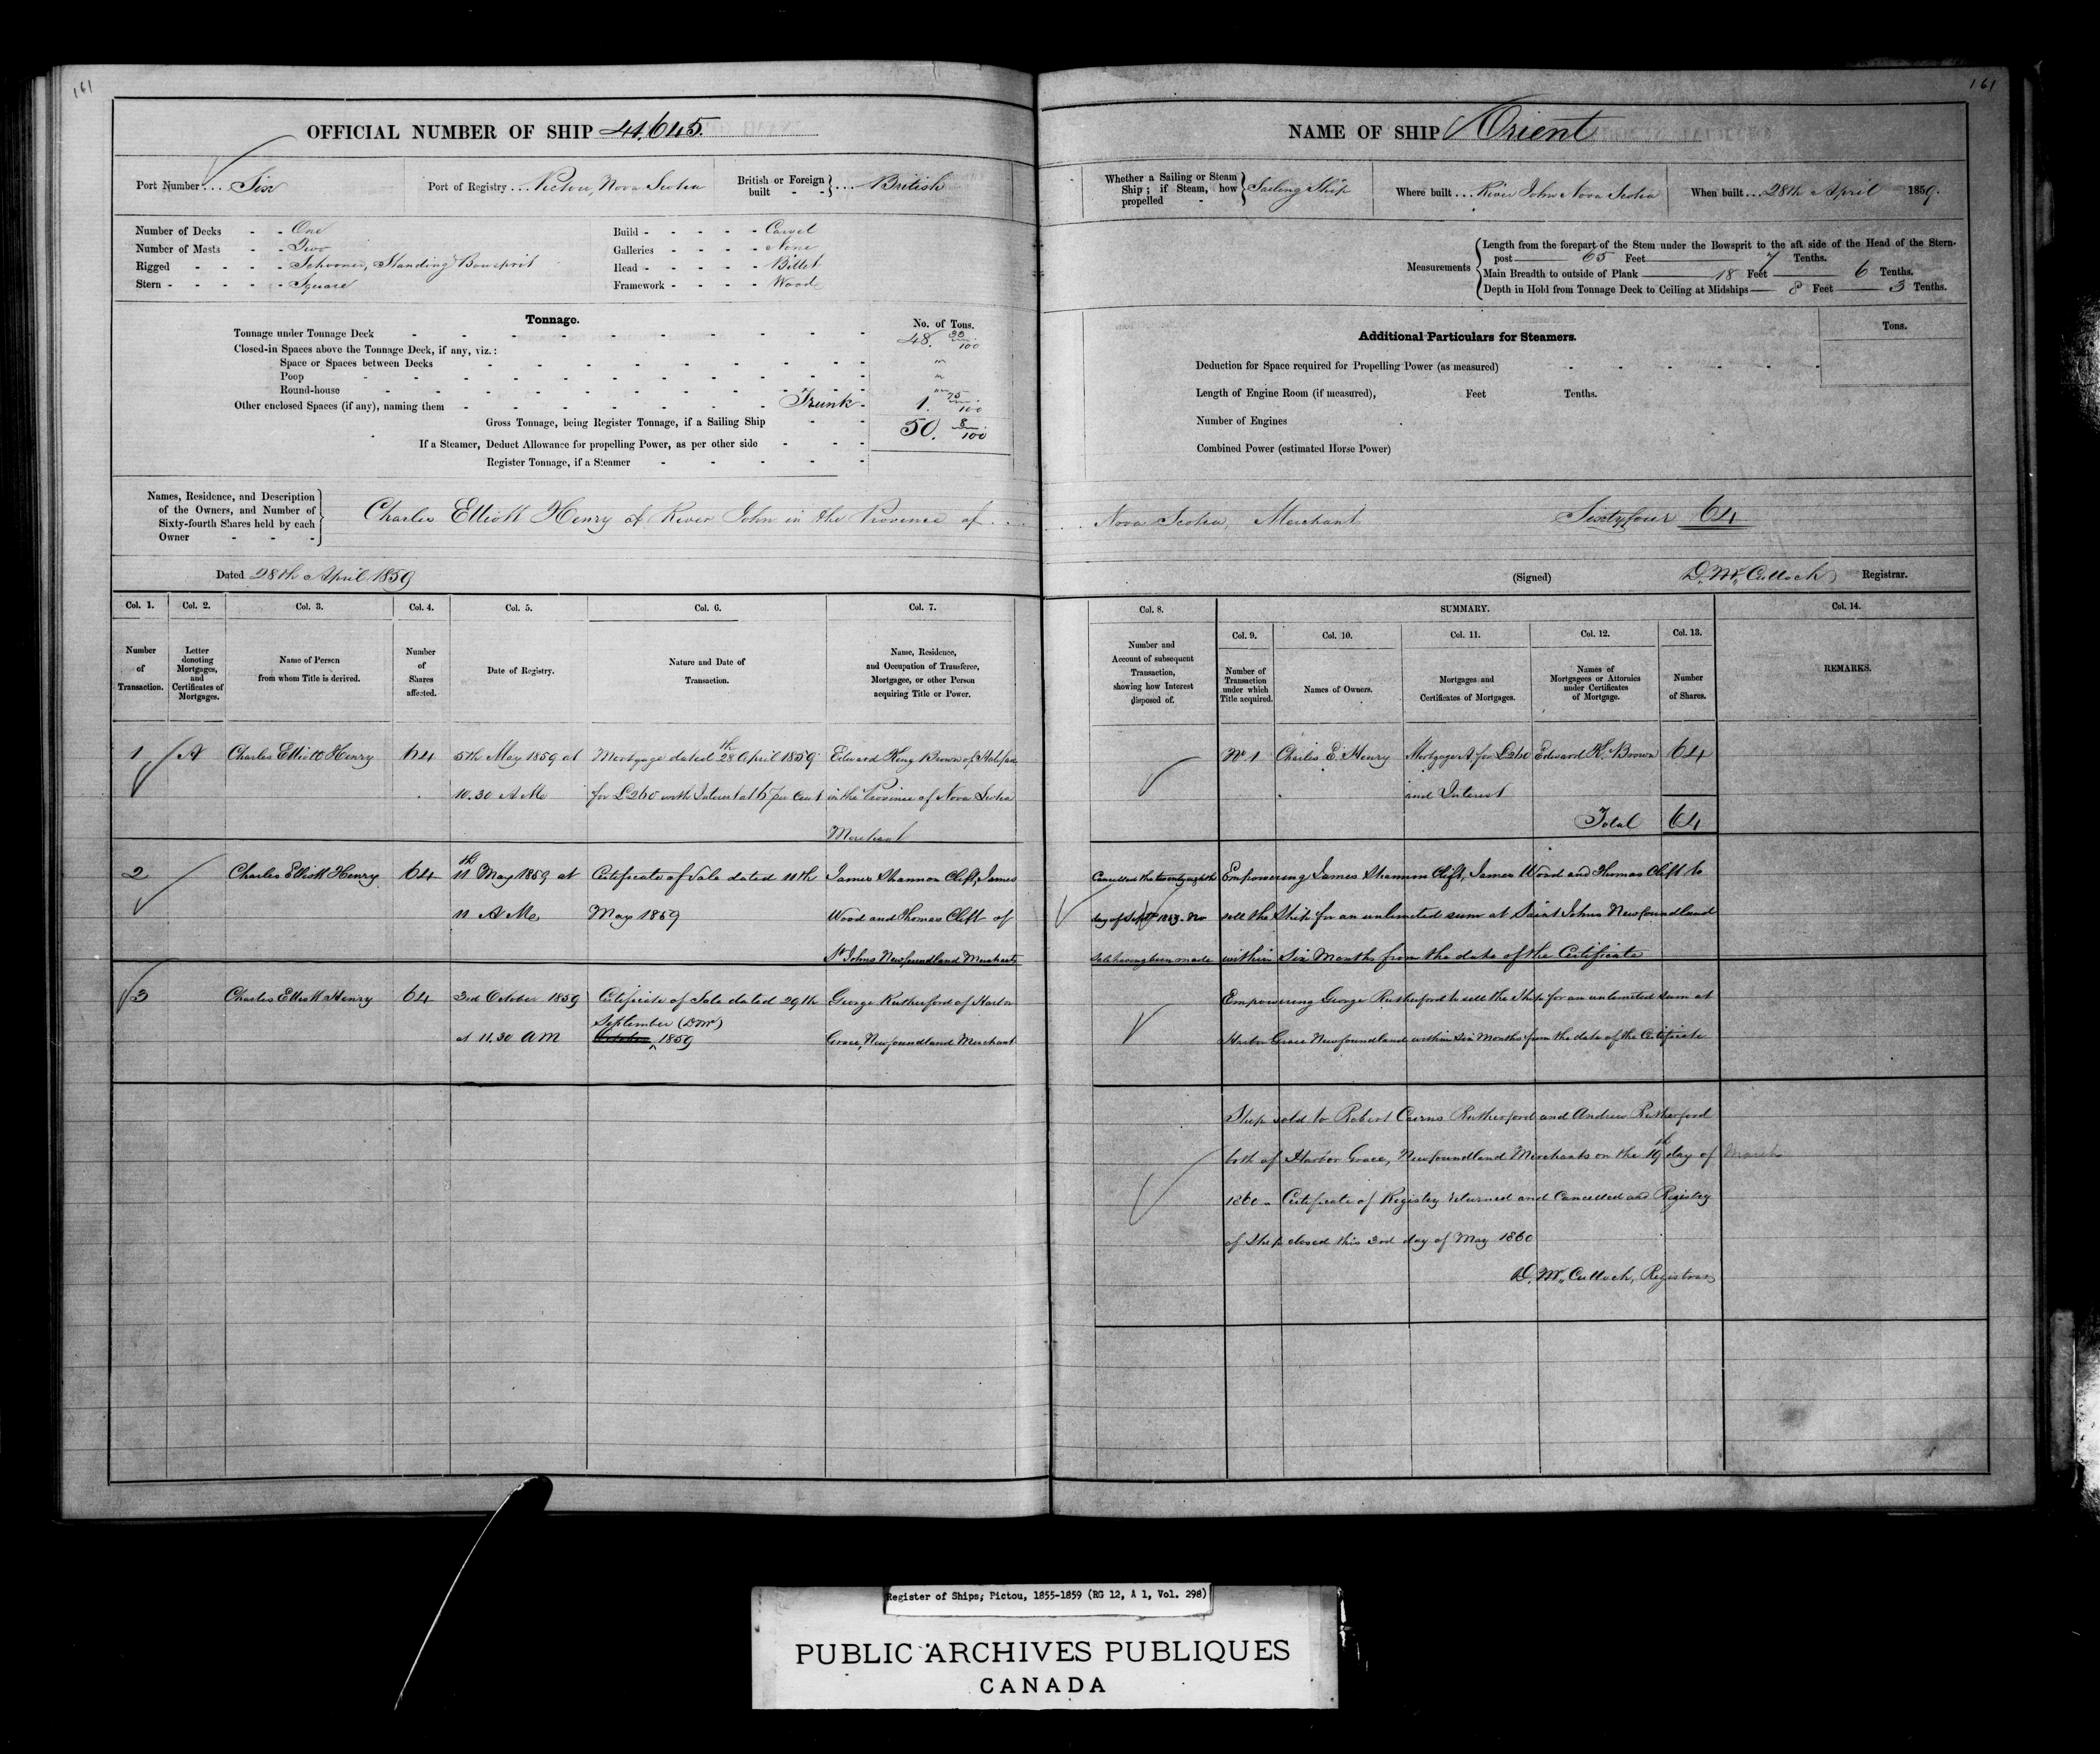 161
OFFICIAL NUMBER OF SHIP 41.645.
Port Number ... Six
Port of Registry ... Pictou, Nova Scotia
British or Foreign built - - } ... British
Number of Decks - - One
Number of Masts - - Two
Rigged - - - - Schooner, Standing Bowsprit
Stern - - - - - Square
Build - - - - - Carvel
Galleries - - - - None
Head - - - - - Billet
Framework - - - - Wood
Tonnage.
No. of Tons.
Tonnage under Tonnage Deck 48. 33/100
Closed-in Spaces above the Tonnage Deck, if any, viz.:
Space or Spaces between Decks "
Poop "
Round-house "
Other enclosed Spaces (if any), naming them Trunk - 1. 75/100
Gross Tonnage, being Register Tonnage, if a Sailing Ship 50. 8/100
If a Steamer, Deduct Allowance for propelling Power, as per other side
Register Tonnage, if a Steamer
Names, Residence, and Description
of the Owners, and Number of
Sixty-fourth Shares held by each
Owner
Charles Elliott Henry of River John in the Province of ...
Dated 28th April 1859
Col. 1. Col. 2. Col. 3. Col. 4. Col. 5. Col. 6. Col. 7.
Number of Transaction.
Letter denoting Mortgages, and Certificates of Mortgages.
Name of Person from whom Title is derived.
Number of Shares affected.
Date of Registry.
Nature and Date of Transaction.
Name, Residence, and Occupation of Transferee, Mortgagee, or other Person acquiring Title or Power.
1 A Charles Elliott Henry 64 5th May 1859 at Mortgage dated 28th April 1859 Edward King Brown of Halifax
10.30 A M for £260 with Interest at 6 per Cent in the Province of Nova Scotia
Merchant
2 Charles Elliott Henry 64 11th May 1859 at Certificate of Sale dated 11th James Shannon Clift, James
11 A M May 1859 Wood and Thomas Clift of
St Johns Newfoundland Merchants
3 Charles Elliott Henry 64 3rd October 1859 Certificate of Sale dated 29th George Rutherford of Harbor
September (DMc)
at 11.30 A M October 1859 Grace, Newfoundland Merchant
161
NAME OF SHIP Orient
Whether a Sailing or Steam Ship; if Steam, how propelled - } Sailing Ship
Where built ... River John Nova Scotia
When built ... 28th April 1859.
Measurements
Length from the forepart of the Stem under the Bowsprit to the aft side of the Head of the Stern-
post 65 Feet 7 Tenths.
Main Breadth to outside of Plank 18 Feet 6 Tenths.
Depth in Hold from Tonnage Deck to Ceiling at Midships 8 Feet 3 Tenths.
Additional Particulars for Steamers.
Tons.
Deduction for Space required for Propelling Power (as measured)
Length of Engine Room (if measured), Feet Tenths.
Number of Engines
Combined Power (estimated Horse Power)
Nova Scotia, Merchant Sixty four 64
(Signed) D. McCulloch Registrar.
Col. 8. SUMMARY. Col. 14.
Col. 9. Col. 10. Col. 11. Col. 12. Col. 13.
Number and Account of subsequent Transaction, showing how Interest disposed of.
Number of Transaction under which Title acquired.
Names of Owners.
Mortgages and Certificates of Mortgages.
Names of Mortgagees or Attornies under Certificates of Mortgage.
Number of Shares.
REMARKS.
No 1 Charles E. Henry Mortgage A for £260 Edward K. Brown 64
and Interest
Total 64
Cancelled the twenty eighth Empowering James Shannon Clift, James Wood and Thomas Clift to
day of Septr 1859. No sell the Ship for an unlimited sum at Saint Johns Newfoundland
Sale having been made within Six Months from the date of the Certificate
Empowering George Rutherford to sell the Ship for an unlimited sum at
Harbor Grace Newfoundland within six Months from the date of the Certificate
Ship sold to Robert Cairns Rutherford and Andrew Rutherford
both of Harbor Grace, Newfoundland Merchants on the 19th day of March
1860 - Certificate of Registry returned and Cancelled and Registry
of Ship closed this 3rd day of May 1860
D. McCulloch, Registrar
Register of Ships; Pictou, 1855-1859 (RG 12, A 1, Vol. 298)
PUBLIC ARCHIVES PUBLIQUES
CANADA